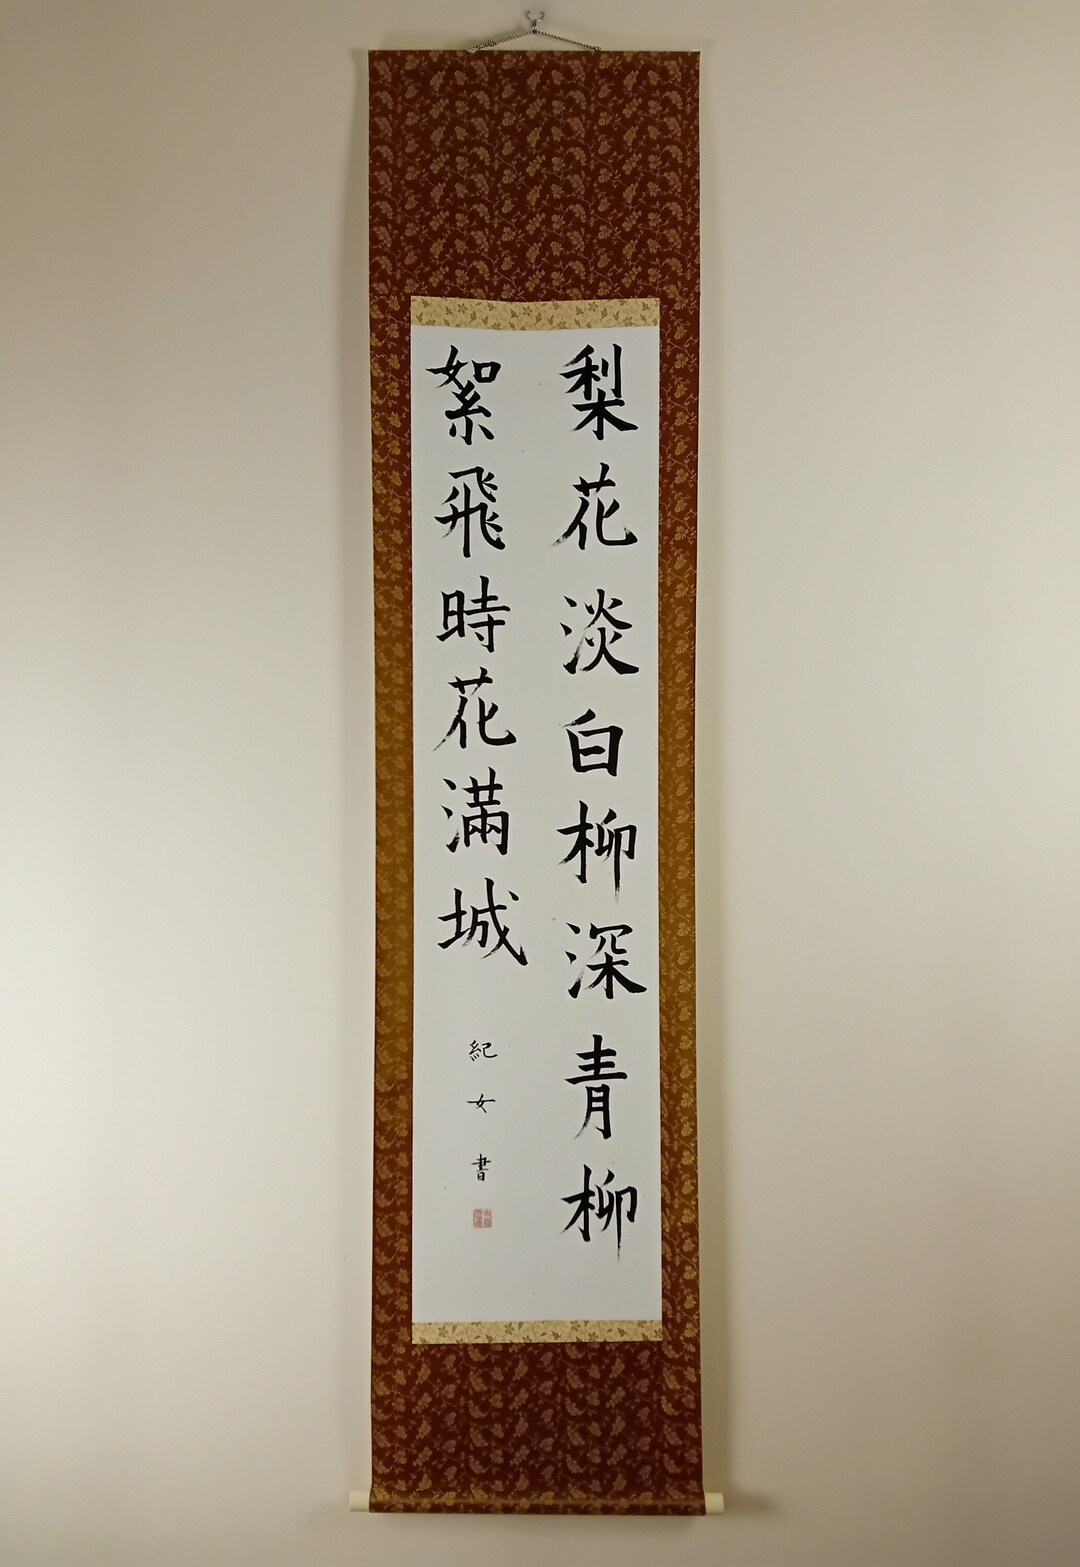 梨花淡白柳深青柳
絮飛時花滿城
紀女書